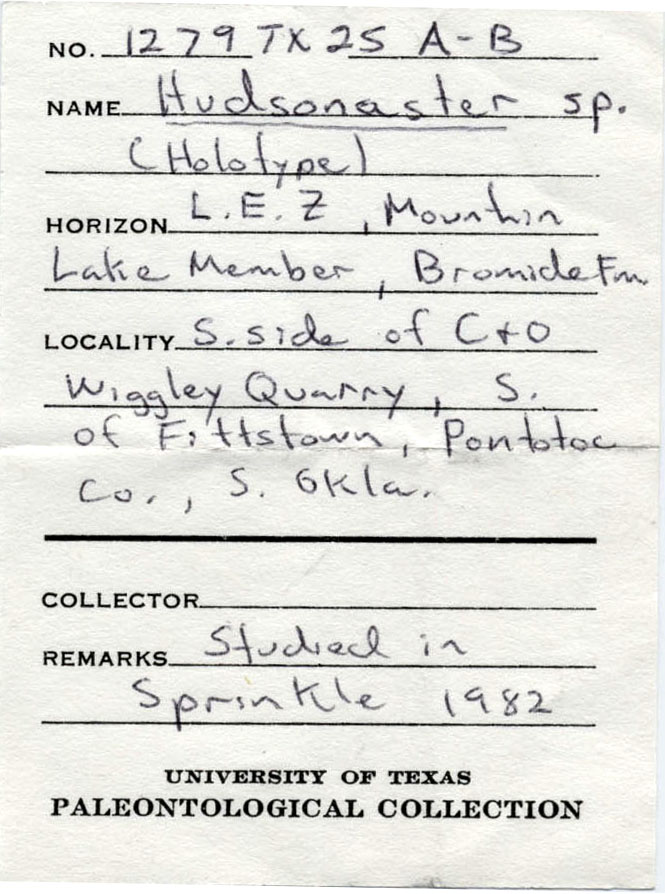 NO. 1279 TX 25 A-B
NAME Hudsonaster sp.
(Holotype)
HORIZON L.E.Z, Mountain
Lake Member, Bromide Fm.
LOCALITY S. side of C+O
Wiggley Quarry, S.
of Fittstown, Pontotoc
Co., S. Okla.
COLLECTOR
REMARKS Studied in
Sprinkle 1982
UNIVERSITY OF TEXAS
PALEONTOLOGICAL COLLECTION